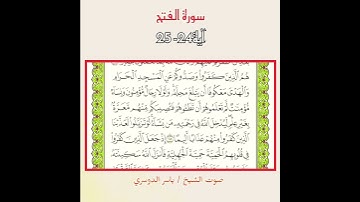 سورة الفتح
آية 24-25
هُمُ ٱلَّذِينَ كَفَرُواْ وَصَدُّوكُمْ عَنِ ٱلْمَسْجِدِ ٱلْحَرَامِ
وَٱلْهَدْىَ مَعْكُوفًا أَن يَبْلُغَ مَحِلَّهُۥ وَلَوْلَا رِجَالٌ مُّؤْمِنُونَ وَنِسَآءٌ
مُّؤْمِنَٰتٌ لَّمْ تَعْلَمُوهُمْ أَن تَطَـُٔوهُمْ فَتُصِيبَكُم مِّنْهُم مَّعَرَّةٌۢ
بِغَيْرِ عِلْمٍ لِّيُدْخِلَ ٱللَّهُ فِى رَحْمَتِهِۦ مَن يَشَآءُ لَوْ تَزَيَّلُواْ لَعَذَّبْنَا
ٱلَّذِينَ كَفَرُواْ مِنْهُمْ عَذَابًا أَلِيمًا ٢٥ إِذْ جَعَلَ ٱلَّذِينَ كَفَرُواْ
فِى قُلُوبِهِمُ ٱلْحَمِيَّةَ حَمِيَّةَ ٱلْجَٰهِلِيَّةِ فَأَنزَلَ ٱللَّهُ سَكِينَتَهُۥ
صوت الشيخ / ياسر الدوسري